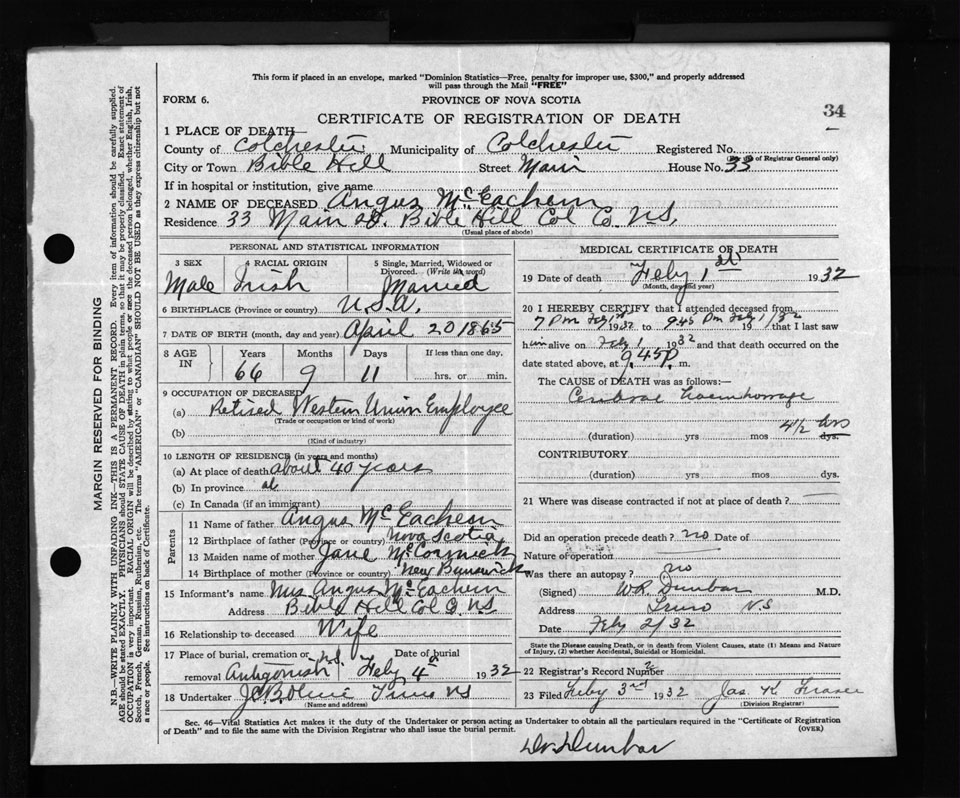 This form if placed in an envelope, marked "Dominion Statistics—Free, penalty for improper use, $300," and properly addressed
will pass through the Mail "FREE"
FORM 6.
PROVINCE OF NOVA SCOTIA
34
CERTIFICATE OF REGISTRATION OF DEATH
1 PLACE OF DEATH—
County of Colchester Municipality of Colchester Registered No.
(For use of Registrar General only)
City or Town Bible Hill Street Main House No. 33
If in hospital or institution, give name
2 NAME OF DECEASED Angus McEachern
Residence 33 Main St. Bible Hill Col Co. N.S.
(Usual place of abode)
PERSONAL AND STATISTICAL INFORMATION
3 SEX Male
4 RACIAL ORIGIN Irish
5 Single, Married, Widowed or Divorced. (Write the word) Married
6 BIRTHPLACE (Province or country) U.S.A.
7 DATE OF BIRTH (month, day and year) April 20 1865
8 AGE IN Years Months Days If less than one day.
66 9 11 hrs. or min.
9 OCCUPATION OF DECEASED
(a) Retired Western Union Employee
(Trade or occupation or kind of work)
(b)
(Kind of industry)
10 LENGTH OF RESIDENCE (in years and months)
(a) At place of death about 40 years
(b) In province
(c) In Canada (if an immigrant)
Parents
11 Name of father Angus McEachern
12 Birthplace of father (Province or country) Nova Scotia
13 Maiden name of mother Jane McCormick
14 Birthplace of mother (Province or country) New Bunswick
15 Informant's name Mrs Angus McEachern
Address Bible Hill Col Co. N.S
16 Relationship to deceased Wife
17 Place of burial, cremation or removal Antigonish N.S. Date of burial Feby 4th 1932
18 Undertaker Truro NS
(Name and address)
MEDICAL CERTIFICATE OF DEATH
19 Date of death Feby 1st 1932
(Month, day and year)
20 I HEREBY CERTIFY that I attended deceased from
7 Pm Feby 1st 1932 to 9.45 Pm Feby 1/32 19 that I last saw
him alive on Feby 1 1932 and that death occurred on the
date stated above, at 9.45 P. m.
The CAUSE of DEATH was as follows:—
Cerebral haemhorrage
(duration) yrs mos 4 1/2 hrs dys.
CONTRIBUTORY
(duration) yrs mos dys.
21 Where was disease contracted if not at place of death ?
Did an operation precede death ? no Date of
Nature of operation
Was there an autopsy ? no
(Signed) W.R. Dunbar M.D.
Address Truro N.S
Date Feby 2/32
State the Disease causing Death, or in death from Violent Causes, state (1) Means and Nature of Injury, (2) whether Accidental, Suicidal or Homicidal.
22 Registrar's Record Number
23 Filed Feby 3rd 1932 Jas. K. Fraser
(Division Registrar)
Sec. 46—Vital Statistics Act makes it the duty of the Undertaker or person acting as Undertaker to obtain all the particulars required in the "Certificate of Registration
of Death" and to file the same with the Division Registrar who shall issue the burial permit.
(OVER)
Dr. Dunbar
MARGIN RESERVED FOR BINDING
N.B.—WRITE PLAINLY WITH UNFADING INK—THIS IS A PERMANENT RECORD. Every item of information should be carefully supplied.
AGE should be stated EXACTLY. PHYSICIANS should STATE CAUSE OF DEATH in plain terms, so that it may be properly classified. Exact statement of
OCCUPATION is very important. RACIAL ORIGIN will be described by stating to what people or race the deceased person belonged, whether English, Irish,
Scotch, French, German, Russian, Ruthenian, etc. The terms "AMERICAN" or "CANADIAN" SHOULD NOT BE USED as they express citizenship but not
a race or people. See instructions on back of Certificate.